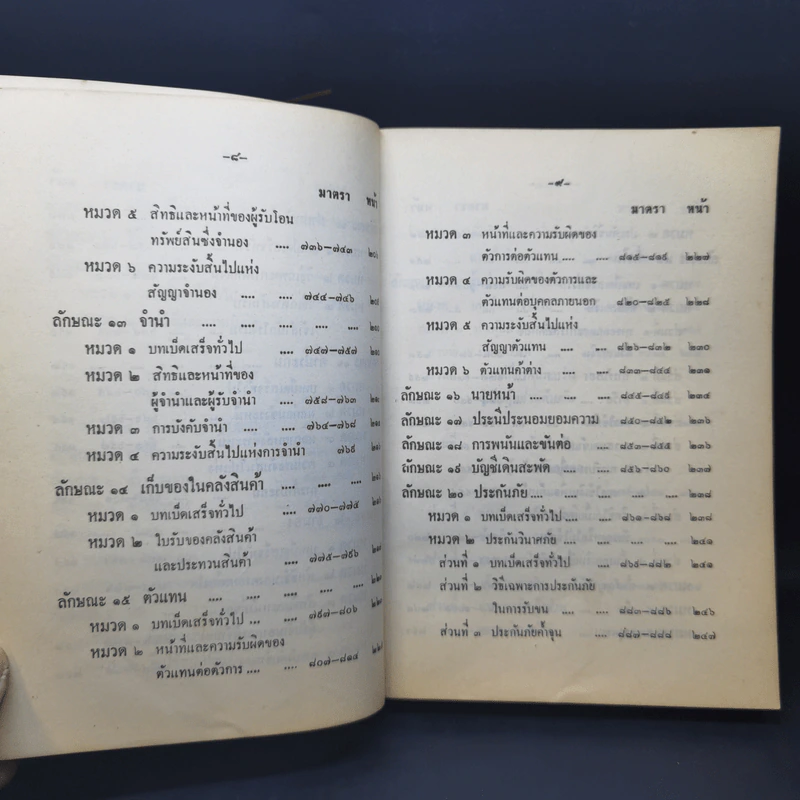 –๘–
มาตรา หน้า
หมวด ๕ สิทธิและหน้าที่ของผู้รับโอน
ทรัพย์สินซึ่งจำนอง .... ๗๓๖–๗๔๓
หมวด ๖ ความระงับสิ้นไปแห่ง
สัญญาจำนอง .... .... ๗๔๔–๗๔๖
ลักษณะ ๑๓ จำนำ .... .... .... .... ....
หมวด ๑ บทเบ็ดเสร็จทั่วไป .... .... ๗๔๗–๗๕๗
หมวด ๒ สิทธิและหน้าที่ของ
ผู้จำนำและผู้รับจำนำ .... ๗๕๘–๗๖๓
หมวด ๓ การบังคับจำนำ .... .... ๗๖๔–๗๖๘
หมวด ๔ ความระงับสิ้นไปแห่งการจำนำ ๗๖๙
ลักษณะ ๑๔ เก็บของในคลังสินค้า .... .... ....
หมวด ๑ บทเบ็ดเสร็จทั่วไป .... .... ๗๗๐–๗๗๔
หมวด ๒ ใบรับของคลังสินค้า
และประทวนสินค้า .... .... ๗๗๕–๗๙๖
ลักษณะ ๑๕ ตัวแทน .... .... .... .... ....
หมวด ๑ บทเบ็ดเสร็จทั่วไป .... .... ๗๙๗–๘๐๖
หมวด ๒ หน้าที่และความรับผิดของ
ตัวแทนต่อตัวการ .... .... ๘๐๗–๘๑๔
–๙–
มาตรา หน้า
หมวด ๓ หน้าที่และความรับผิดของ
ตัวการต่อตัวแทน .... .... ๘๑๕–๘๑๙ ๒๒๗
หมวด ๔ ความรับผิดของตัวการและ
ตัวแทนต่อบุคคลภายนอก ๘๒๐–๘๒๕ ๒๒๘
หมวด ๕ ความระงับสิ้นไปแห่ง
สัญญาตัวแทน .... .... ๘๒๖–๘๓๒ ๒๓๐
หมวด ๖ ตัวแทนค้าต่าง .... .... ๘๓๓–๘๔๔ ๒๓๑
ลักษณะ ๑๖ นายหน้า .... .... .... ๘๔๕–๘๔๙ ๒๓๔
ลักษณะ ๑๗ ประนีประนอมยอมความ ๘๕๐–๘๕๒ ๒๓๖
ลักษณะ ๑๘ การพนันและขันต่อ .... ๘๕๓–๘๕๕ ๒๓๖
ลักษณะ ๑๙ บัญชีเดินสะพัด .... .... ๘๕๖–๘๖๐ ๒๓๗
ลักษณะ ๒๐ ประกันภัย .... .... .... .... ๒๓๘
หมวด ๑ บทเบ็ดเสร็จทั่วไป .... .... ๘๖๑–๘๖๘ ๒๓๘
หมวด ๒ ประกันวินาศภัย .... .... .... ๒๔๑
ส่วนที่ ๑ บทเบ็ดเสร็จทั่วไป .... ๘๖๙–๘๘๒ ๒๔๑
ส่วนที่ ๒ วิธีเฉพาะการประกันภัย
ในการรับขน .... .... ๘๘๓–๘๘๖ ๒๔๖
ส่วนที่ ๓ ประกันภัยค้ำจุน .... ๘๘๗–๘๘๘ ๒๔๗